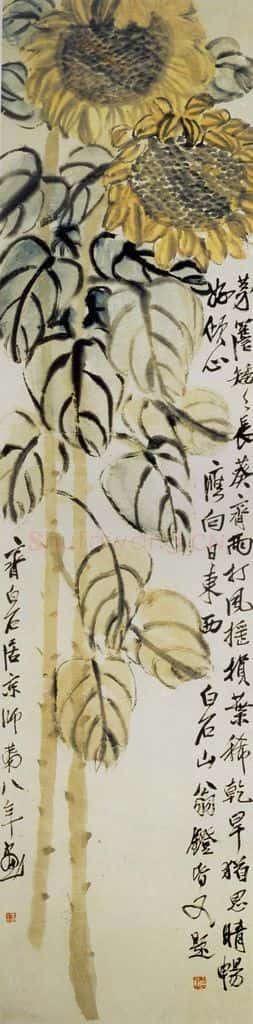 茅簷矮々長葵齊雨打風搖損葉稀乾旱猶思晴暢
好傾心
應向日東西
白石山翁鐙昏又題
齊白石居京師第八年畫